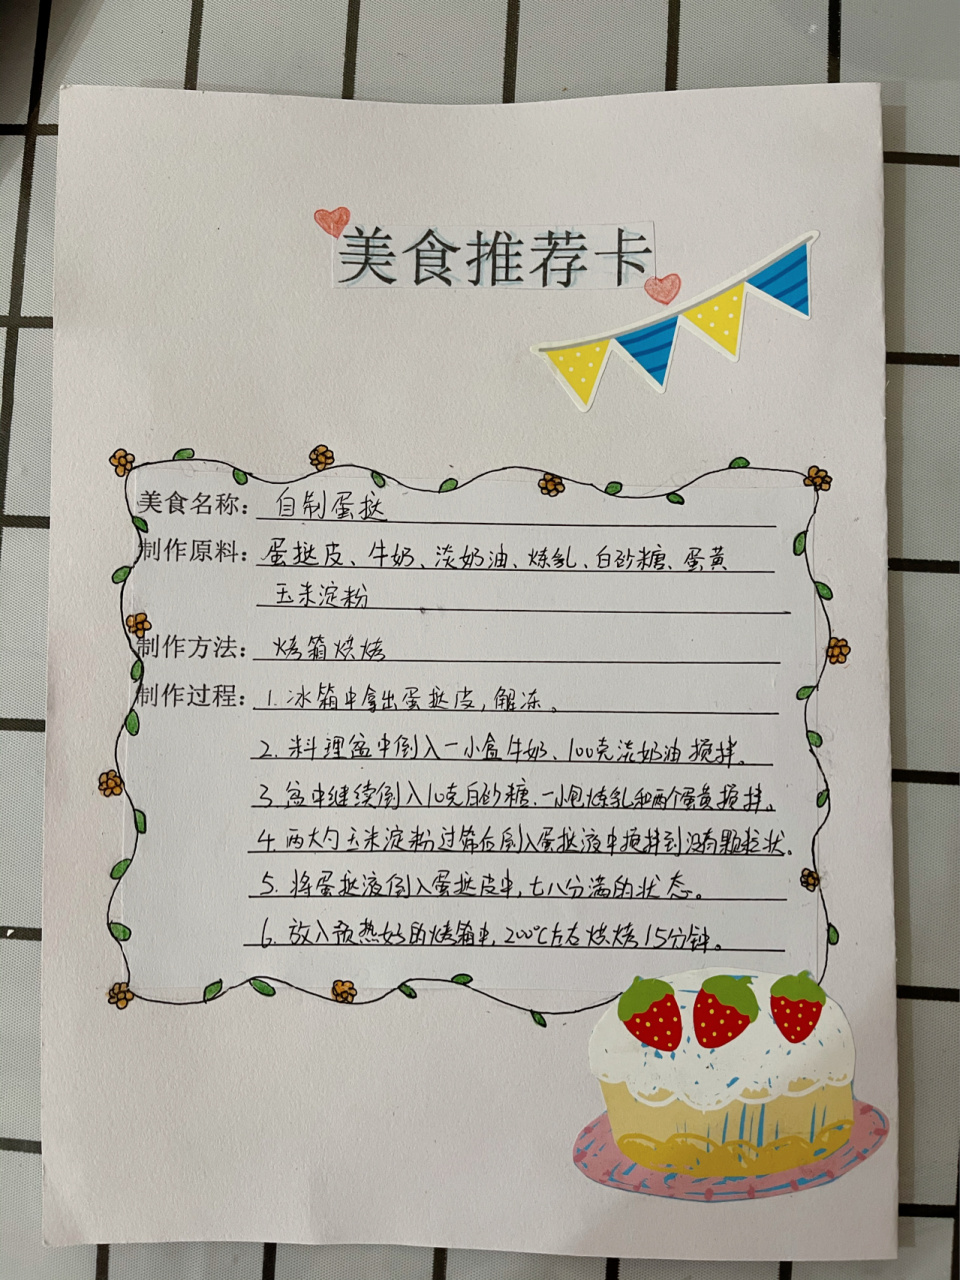 美食推荐卡
美食名称：自制蛋挞
制作原料：蛋挞皮、牛奶、淡奶油、炼乳、白砂糖、蛋黄
玉米淀粉
制作方法：烤箱烘烤
制作过程：1. 冰箱中拿出蛋挞皮，解冻。
2. 料理盆中倒入一小盒牛奶、100克淡奶油搅拌。
3. 盆中继续倒入10克白砂糖、一小包炼乳和两个蛋黄搅拌。
4. 两大勺玉米淀粉过筛后倒入蛋挞液中搅拌到没有颗粒状。
5. 将蛋挞液倒入蛋挞皮中，七八分满的状态。
6. 放入预热好的烤箱中，200℃左右烘烤15分钟。